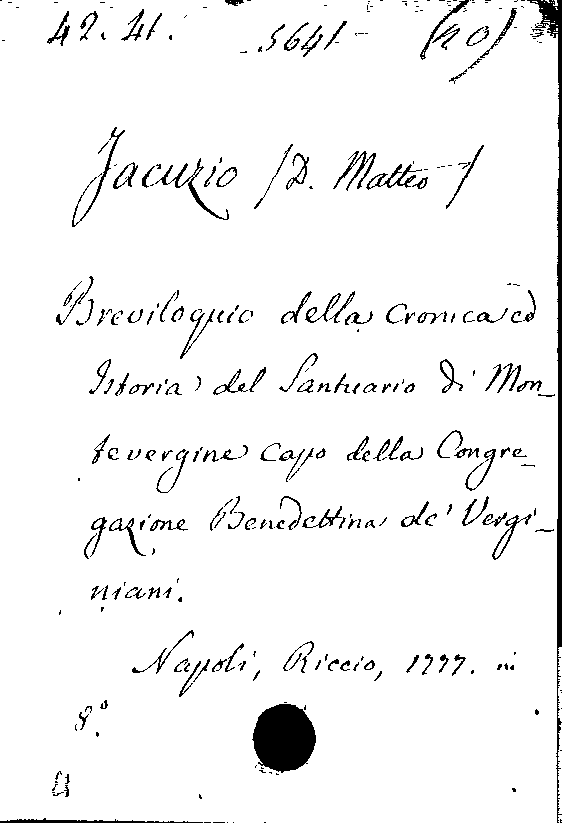 42. 41. 5641 (20)
Jacuzio /D. Matteo/
Breviloquio della Cronica ed
Istoria del Santuario di Mon-
tevergine capo della Congre-
gazione Benedettina de' Vergi-
niani.
Napoli, Riccio, 1777. in
8.°